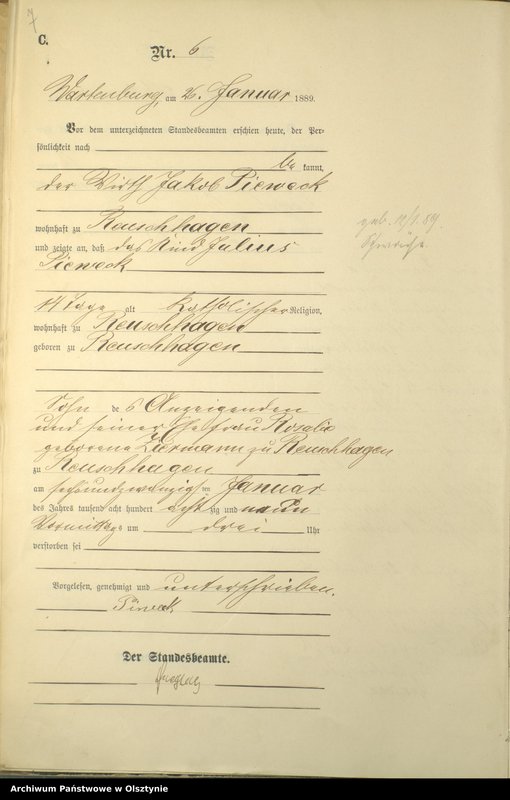 C.
Nr. 6
Wartenburg, am 26. Januar 1889.
Vor dem unterzeichneten Standesbeamten erschien heute, der Per-
sönlichkeit nach
be kannt,
der Wirth Jakob Pieweck
wohnhaft zu Reuschhagen
und zeigte an, daß das Kind Julius
Pieweck
14 Tage alt katholischer Religion,
wohnhaft zu Reuschhagen
geboren zu Reuschhagen
Sohn des Anzeigenden
und seiner Ehefrau Rosalie
geborene Ziermann zu Reuschhagen
zu Reuschhagen
am sechsundzwanzigsten Januar
des Jahres tausend acht hundert achtzig und neun
Vormittags um drei Uhr
verstorben sei
Vorgelesen, genehmigt und unterschrieben.
Pieweck
Der Standesbeamte.
Archiwum Państwowe w Olsztynie